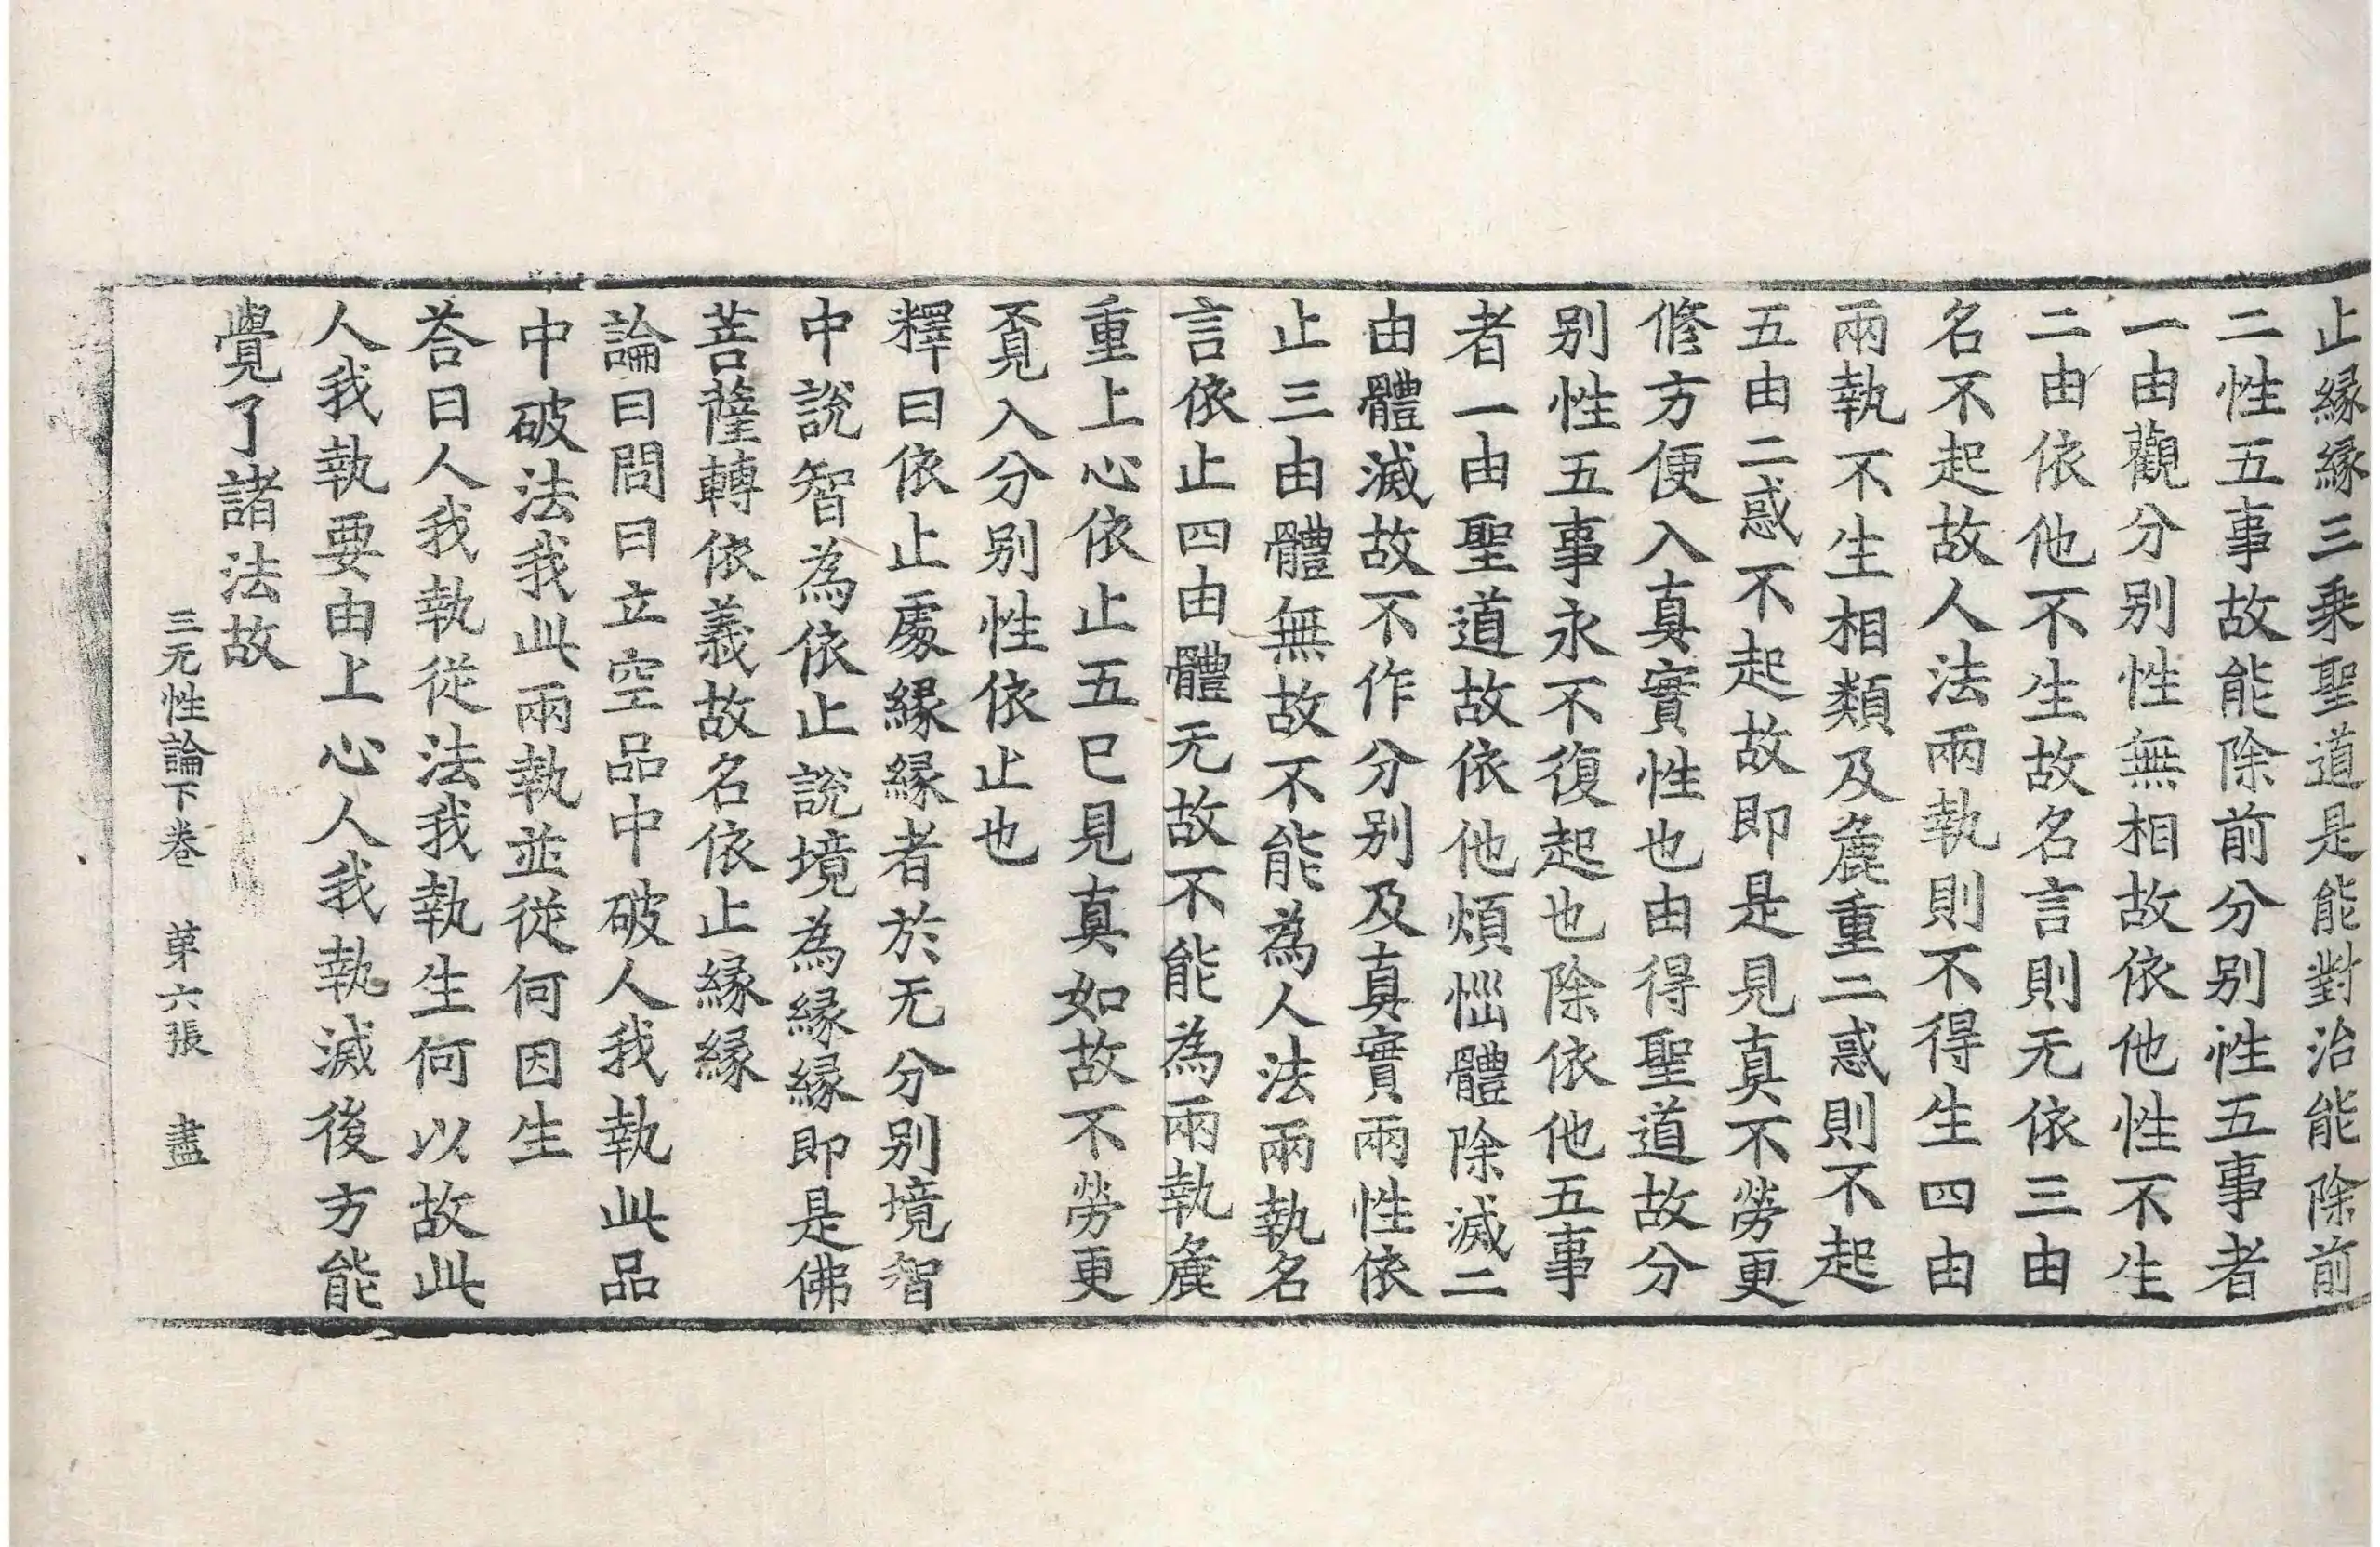 止縁縁三乗聖道是能對治能除前
二性五事故能除前分别性五事者
一由觀分别性無相故依他性不生
二由依他不生故名言則无依三由
名不起故人法兩執則不得生四由
兩執不生相類及麁重二惑則不起
五由二惑不起故即是見真不勞更
修方便入真實性也由得聖道故分
别性五事永不復起也除依他五事
者一由聖道故依他煩惱體除滅二
由體滅故不作分别及真實兩性依
止三由體無故不能為人法兩執名
言依止四由體无故不能為兩執麁
重上心依止五已見真如故不勞更
覔入分别性依止也
釋曰依止處縁縁者於无分别境智
中說智為依止說境為縁縁即是佛
菩薩轉依義故名依止縁縁
論曰問曰立空品中破人我執此品
中破法我此兩執並從何因生
荅曰人我執從法我執生何以故此
人我執要由上心人我執滅後方能
覺了諸法故
三无性論下卷　苐六張　盡